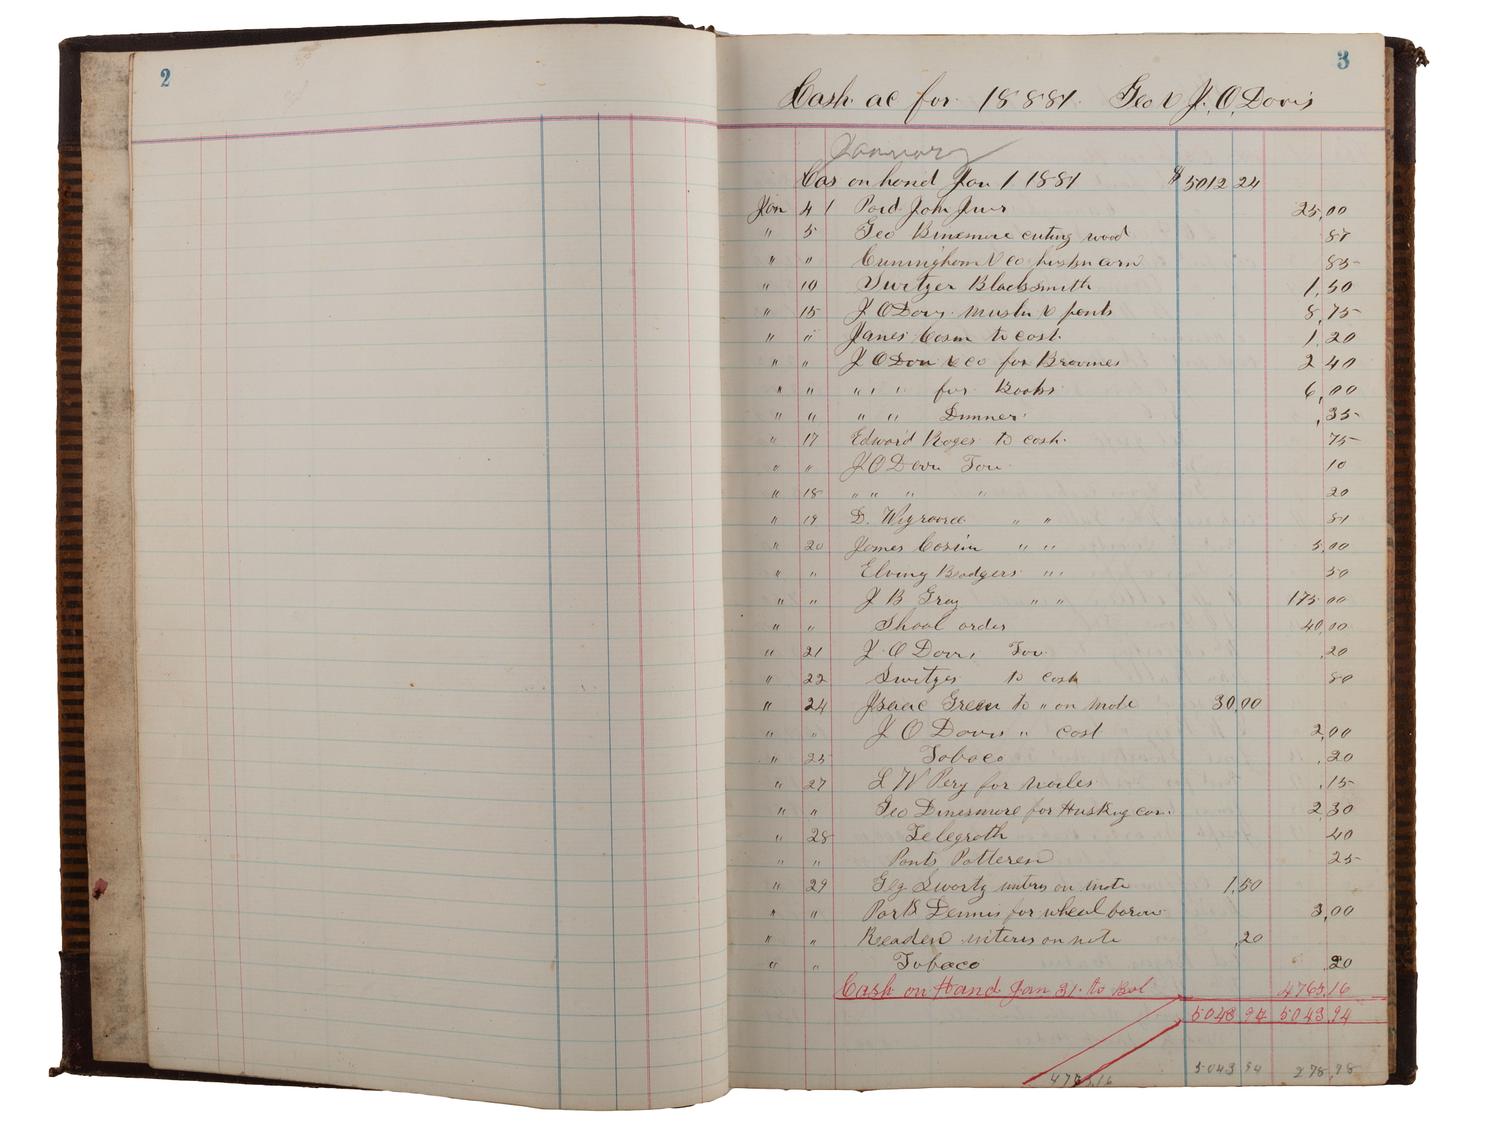 2
3
Cash ac for 18881. Geo & J. O. Davis
January
Cas on hand Jan 1 1881 $5012 24
Jan 4 Paid John 25,00
" 5 Geo Binesmore cuting wood 87
" " Cuningham & co 85
" 10 Switzer Blacksmith 1,50
" 15 J O Davis & pents 8,75
" " James to cost. 1,20
" " J O Davi & co for Broomes 2 40
" " " " " for Books 6,00
" " " " " Dinner ,35
" 17 Edward Roger to cash. 75
" " J O Davis 10
" 18 " " " " 20
" 19 D. " "
" 20 James " " 5,00
" " Elving Beadgers " " 50
" " J B Gray " " 175 00
" " Shool order 40,00
" 21 J. O Davis ,20
" 22 Switzer to cash 80
" 24 Isaac Green to " on Note 30,00
" " J O Davis " cost 2,00
" 25 Tobaco ,20
" 27 L W Pery for nailes ,15
" " Geo Dinesmore for Husking cor. 2 30
" 28 Telegroth 40
" " Pants Patteren 25
" 29 Swartz interis on note 1,50
" " Park Dennis for wheal barow 3,00
" " Readen interis on note ,20
" " Tobaco 20
Cash on Hand Jan 31. to Bal 4765,16
5043 94 5043,94
5043 94 278,78
4765,16